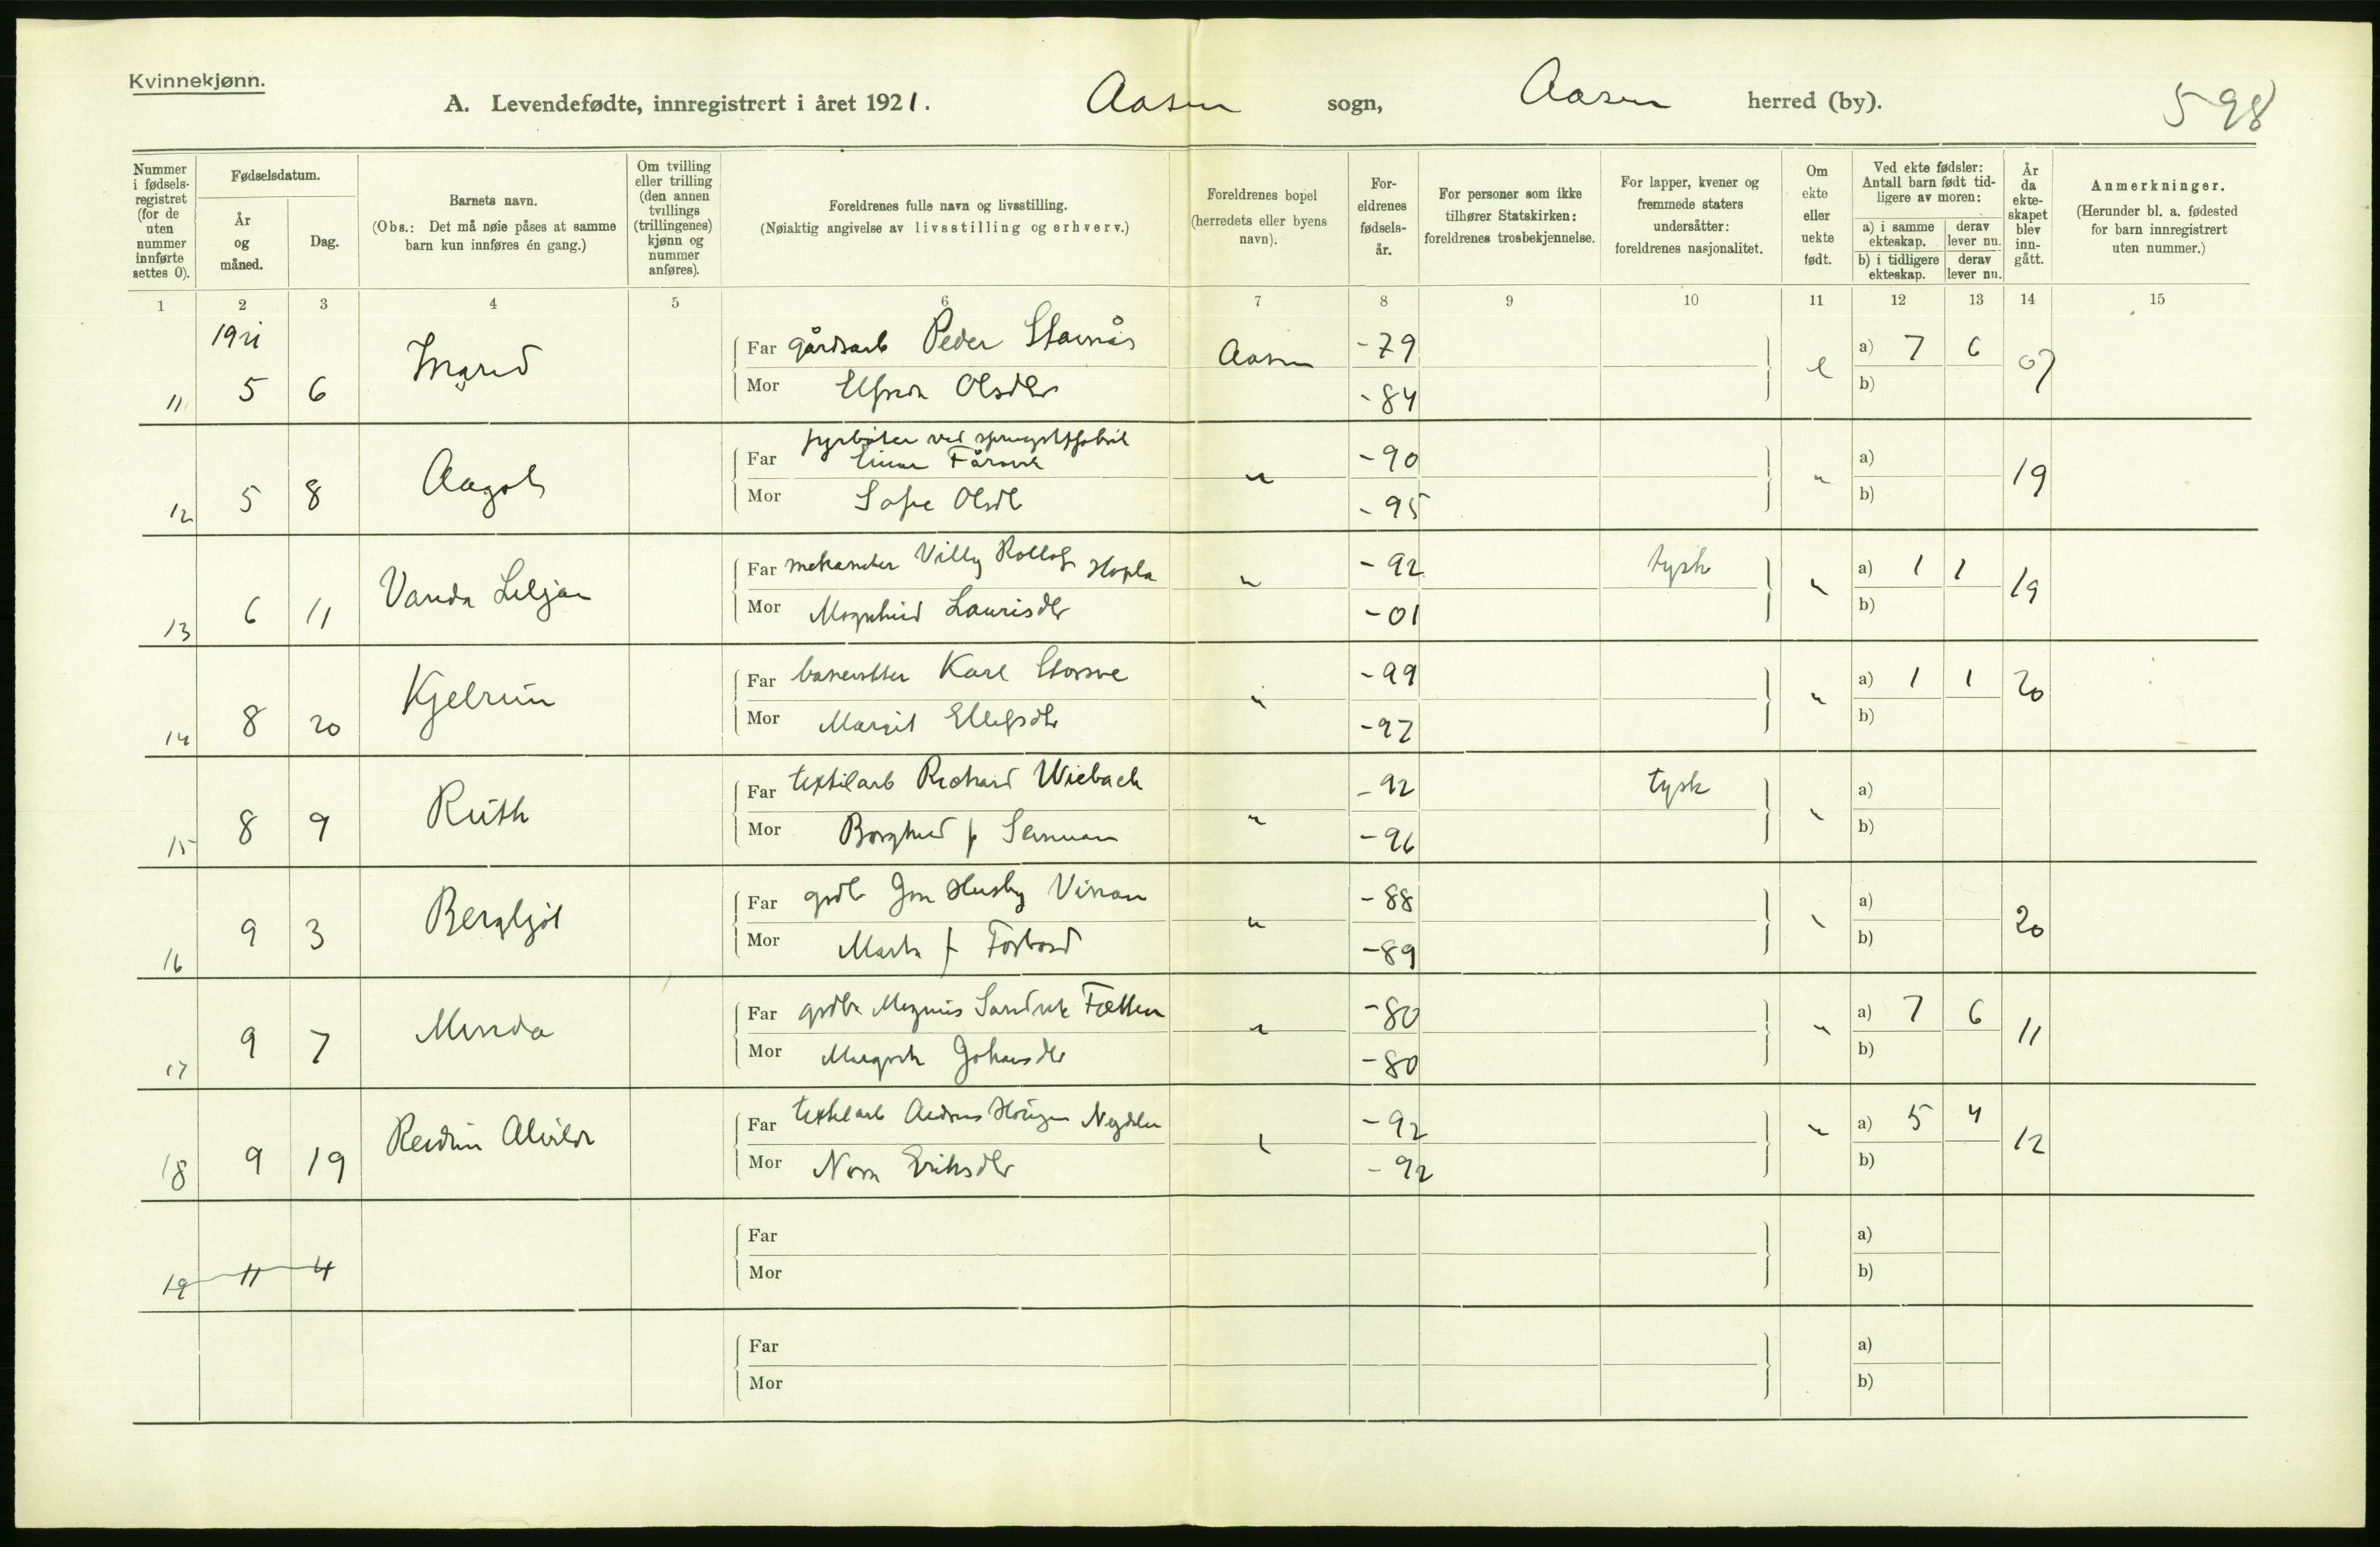 Kvinnekjønn.
A. Levendefødte, innregistrert i året 1921. Aasen sogn, Aasen herred (by). 598
Nummer i fødselsregistret (for de uten nummer innførte settes 0).
Fødselsdatum.
År og måned.
Dag.
Barnets navn.
(Obs.: Det må nøie påses at samme barn kun innføres én gang.)
Om tvilling eller trilling (den annen tvillings (trillingenes) kjønn og nummer anføres).
Foreldrenes fulle navn og livsstilling.
(Nøiaktig angivelse av livsstilling og erhverv.)
Foreldrenes bopel (herredets eller byens navn).
Foreldrenes fødselsår.
For personer som ikke tilhører Statskirken: foreldrenes trosbekjennelse.
For lapper, kvener og fremmede staters undersåtter: foreldrenes nasjonalitet.
Om ekte eller uekte født.
Ved ekte fødsler: Antall barn født tidligere av moren:
a) i samme ekteskap. derav lever nu.
b) i tidligere ekteskap. derav lever nu.
År da ekteskapet blev inngått.
Anmerkninger.
(Herunder bl. a. fødested for barn innregistrert uten nummer.)
1 2 3 4 5 6 7 8 9 10 11 12 13 14 15
1921
Far gårdsarb Peder Stavnås Aasen -79 e a) 7 6 07
11 5 6 Ingrid
Mor Elfrida Olsdtr -84 b)
fyrbøter ved
Far Einar -90 " a) 19
12 5 8 Aagot "
Mor Sofie Olsdt -95 b)
Far Villy Hopla " -92 tysk " a) 1 1 19
13 6 11 Vanda
Mor Magnhild Laurisdtr -01 b)
Far Karl Storsve " -99 " a) 1 1 20
14 8 20 Kjelrun
Mor Margit Ellefsdtr -97 b)
Far textilarb Richard Wiebach " -92 tysk " a)
15 8 9 Ruth
Mor Borghild f -96 b)
Far grdb Jon Husby Vinnan " -88 " a) 20
16 9 3 Bergljot
Mor Marta f Forbord -89 b)
Far grdbr Magnus Sandvik Fætten " -80 " a) 7 6 11
17 9 7 Minda
Mor Margrete Johansdtr -80 b)
Far textilarb -92 " a) 5 4 12
18 9 19 Reidun Alvilde "
Mor Nora Eriksdtr -92 b)
Far a)
19 11 4
Mor b)
Far a)
Mor b)